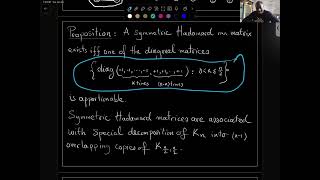 Proposition: A symmetric Hadamard n×n matrix
exists iff one of the diagonal matrices
{diag(+1,-1,...,-1, +1,+1,...,+1) : 0<k≤n/2}
k times (n-k) times
is apportionable.
Symmetric Hadamard matrices are associated
with special decomposition of Kn into (n-1)
overlapping copies of K n/2, n/2.